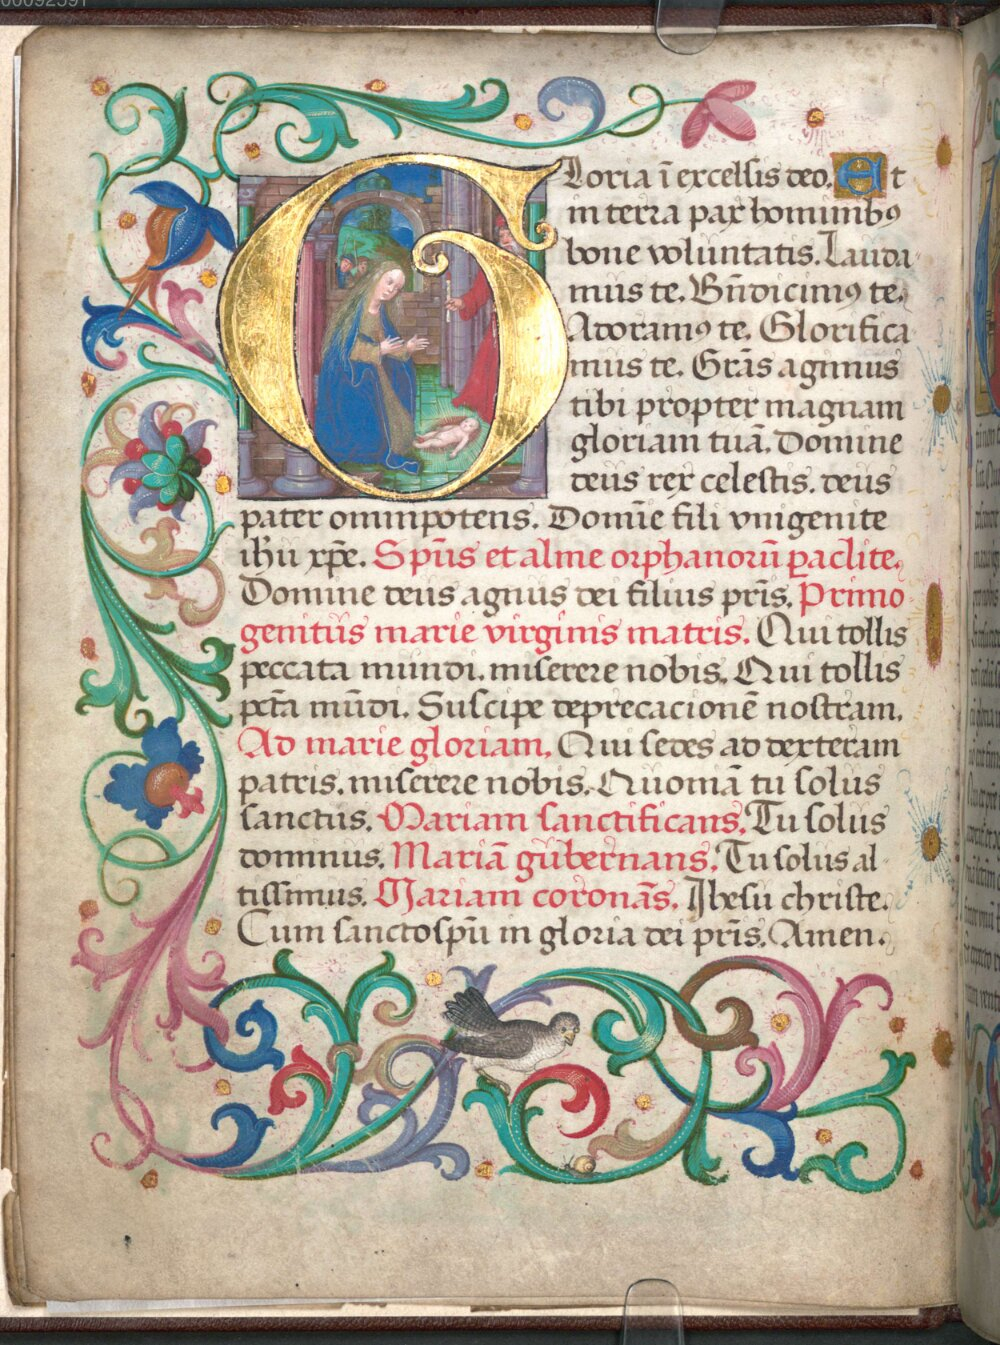 Gloria ī excelsis deo. Et
in terra pax hominibꝯ
bone voluntatis. Lauda
mus te. Bn̄dicimꝯ te.
Adoramꝯ te. Glorifica
mus te. Grās agimus
tibi propter magnam
gloriam tuā. Domine
deus rex celestis. deus
pater omnipotens. Domīe fili vnigenite
ihū xp̄e. Sp̄us et alme orphanorū ꝑaclite.
Domine deus agnus dei filius pr̄is. Primo
genitus marie virginis matris. Qui tollis
peccata mundi. miserere nobis. Qui tollis
pc̄ta mūdi. Suscipe deprecacionē nostram.
Ad marie gloriam. Qui sedes ad dexteram
patris. miserere nobis. Quoniā tu solus
sanctus. Mariam sanctificans. Tu solus
dominus. Mariā gubernans. Tu solus al
tissimus. Mariam coronās. Ihesu christe.
Cum sancto sp̄u in gloria dei pr̄is. Amen.